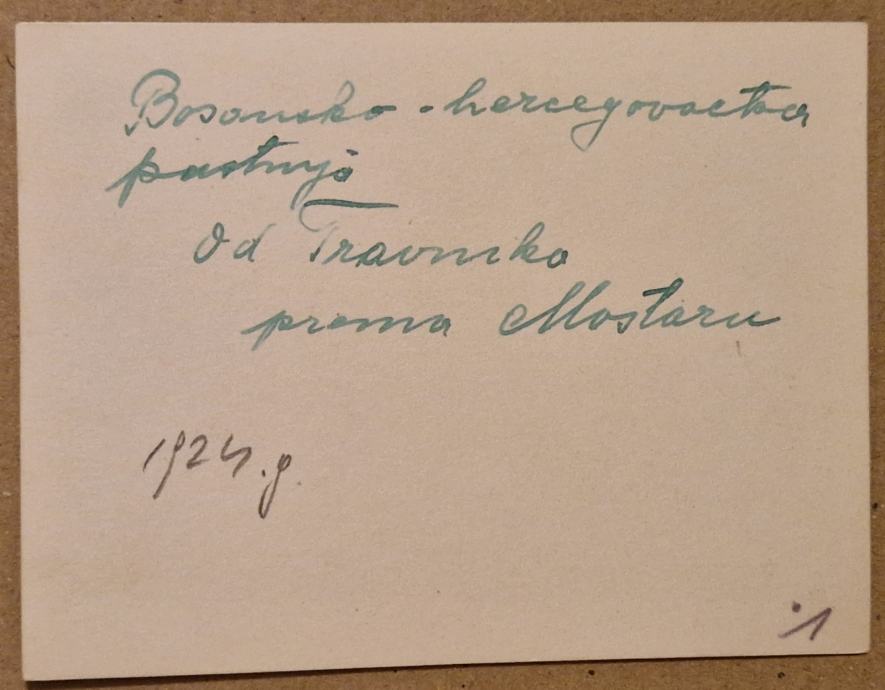 Bosansko-hercegovačka
pustinja
Od Travnika
prema Mostaru
1924.g.
1